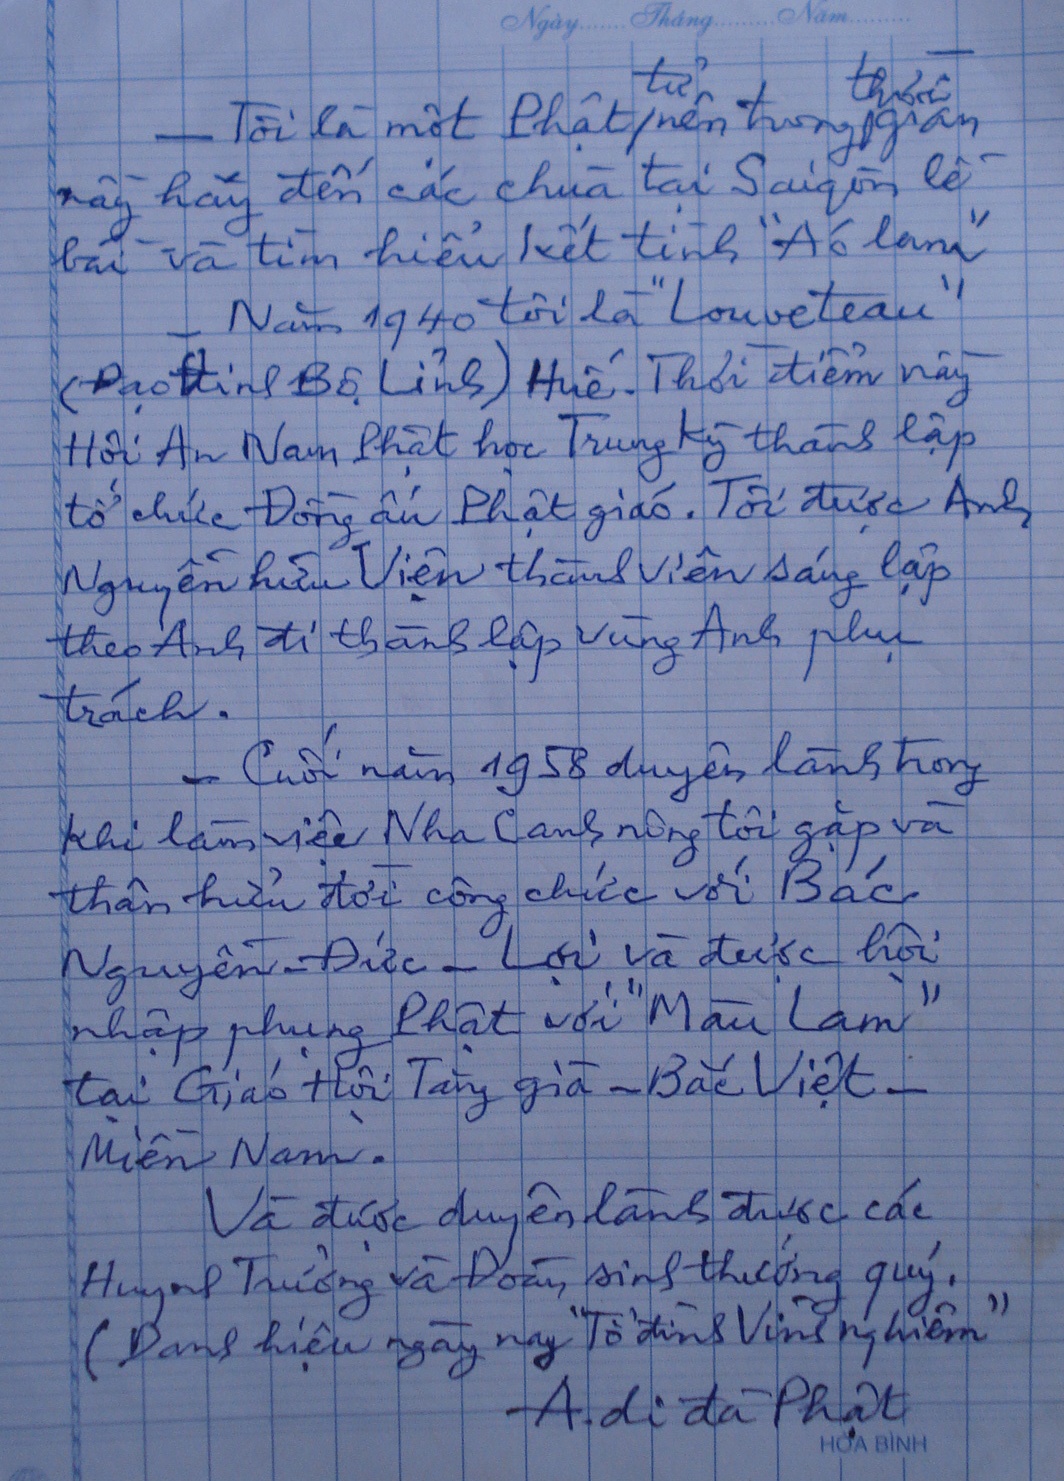 Ngày.......Tháng.........Năm.........
— Tôi là một Phật tử, nên trong thời gian
nầy hay đến các chùa tại Saigòn lễ
bái và tìm hiểu kết tình "Áo lam"
- Năm 1940 tôi là "Louveteau"
(Đạo Đinh Bộ Lĩnh) Huế. Thời điểm nầy
Hội An Nam Phật học Trung Kỳ thành lập
tổ chức Đồng ấu Phật giáo. Tôi được Anh
Nguyễn hữu Viện thành viên sáng lập
theo Anh đi thành lập vùng Anh phụ
trách.
- Cuối năm 1958 duyên lành trong
khi làm việc Nha Canh nông tôi gặp và
thân hữu đời công chức với Bác
Nguyễn - Đức - Lợi và được hội
nhập phụng Phật với "Màu Lam"
tại Giáo Hội Tăng già - Bắc Việt -
Miền Nam.
Và được duyên lành được các
Huynh Trưởng và Đoàn sinh thương quý.
(Danh hiệu ngày nay "Tổ đình Vĩnh nghiêm"
A. di đà Phật
HÒA BÌNH